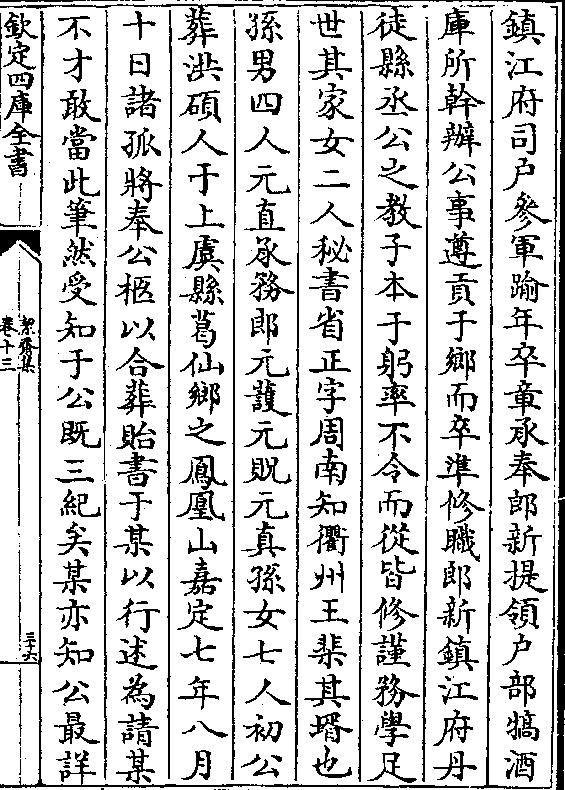 鎮江府司戶參軍踰年卒章承奉郎新提領戶部犒酒
庫所幹辦公事遵貢于鄉而卒準修職郎新鎮江府丹
徒縣丞公之教子本于躬率不令而從皆修謹務學足
世其家女二人秘書省正字周南知衢州王棐其壻也
孫男四人元直承務郎元護元貺元真孫女七人初公
葬洪碩人于上虞縣葛仙鄉之鳳凰山嘉定七年八月
十日諸孤將奉公柩以合葬貽書于某以行述為請某
不才敢當此筆然受知于公既三紀矣某亦知公最詳
欽定四庫全書
絜齋集
卷十三
三十六